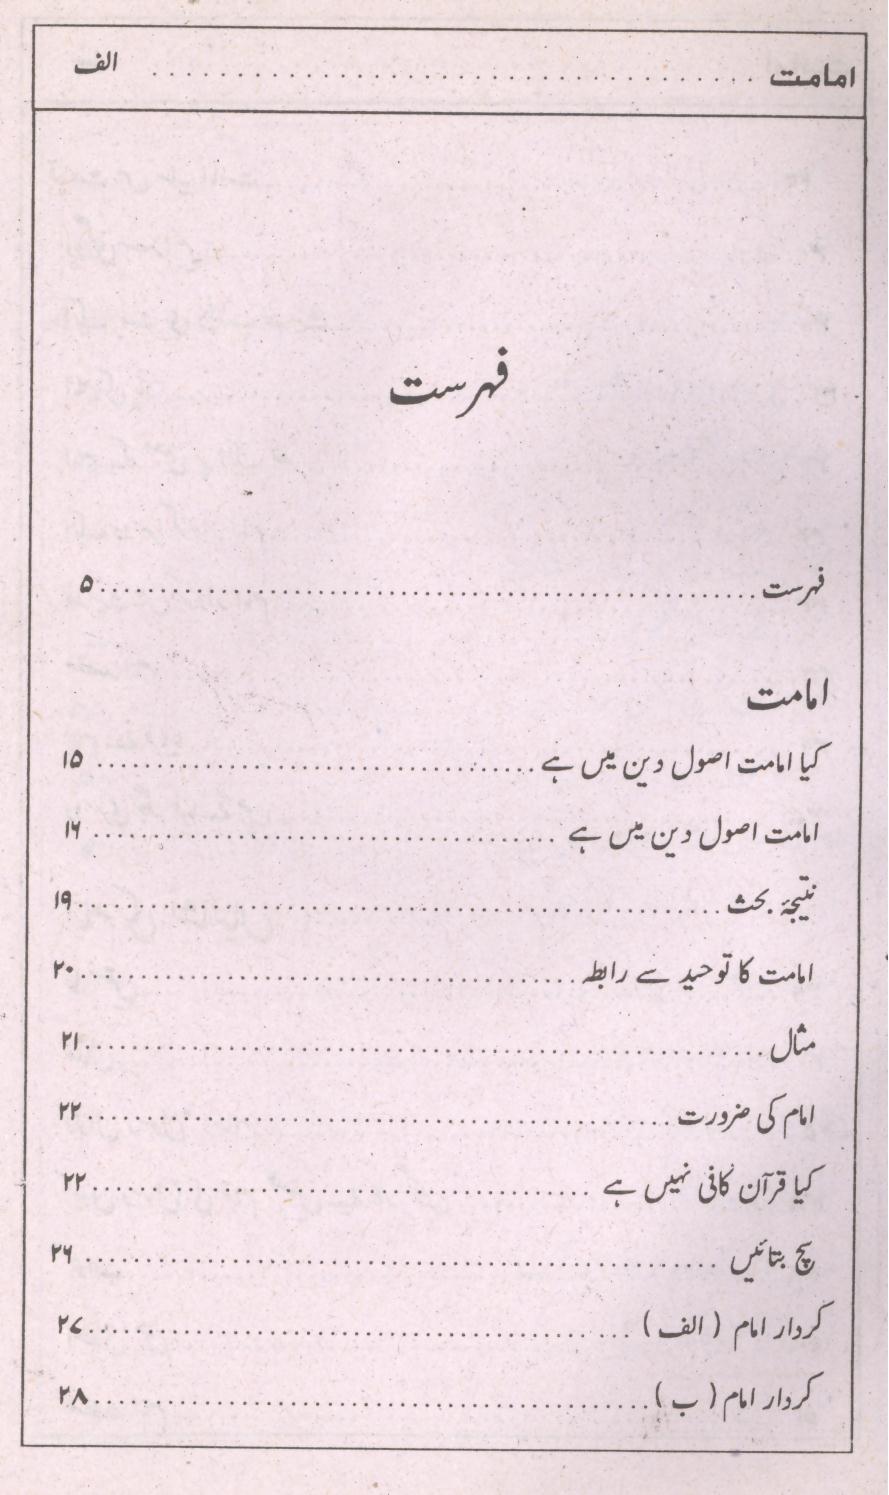 امامت ........................................ الف
فہرست
فہرست ........................................ ۵
امامت
کیا امامت اصول دین میں ہے ........................................ ۱۵
امامت اصول دین میں ہے ........................................ ۱۶
نتیجۂ بحث ........................................ ۱۹
امامت کا توحید سے رابطہ ........................................ ۲۰
مثال ........................................ ۲۱
امام کی ضرورت ........................................ ۲۲
کیا قرآن کافی نہیں ہے ........................................ ۲۲
سچ بتائیں ........................................ ۲۶
کردار امام ( الف ) ........................................ ۲۷
کردار امام ( ب ) ........................................ ۲۸